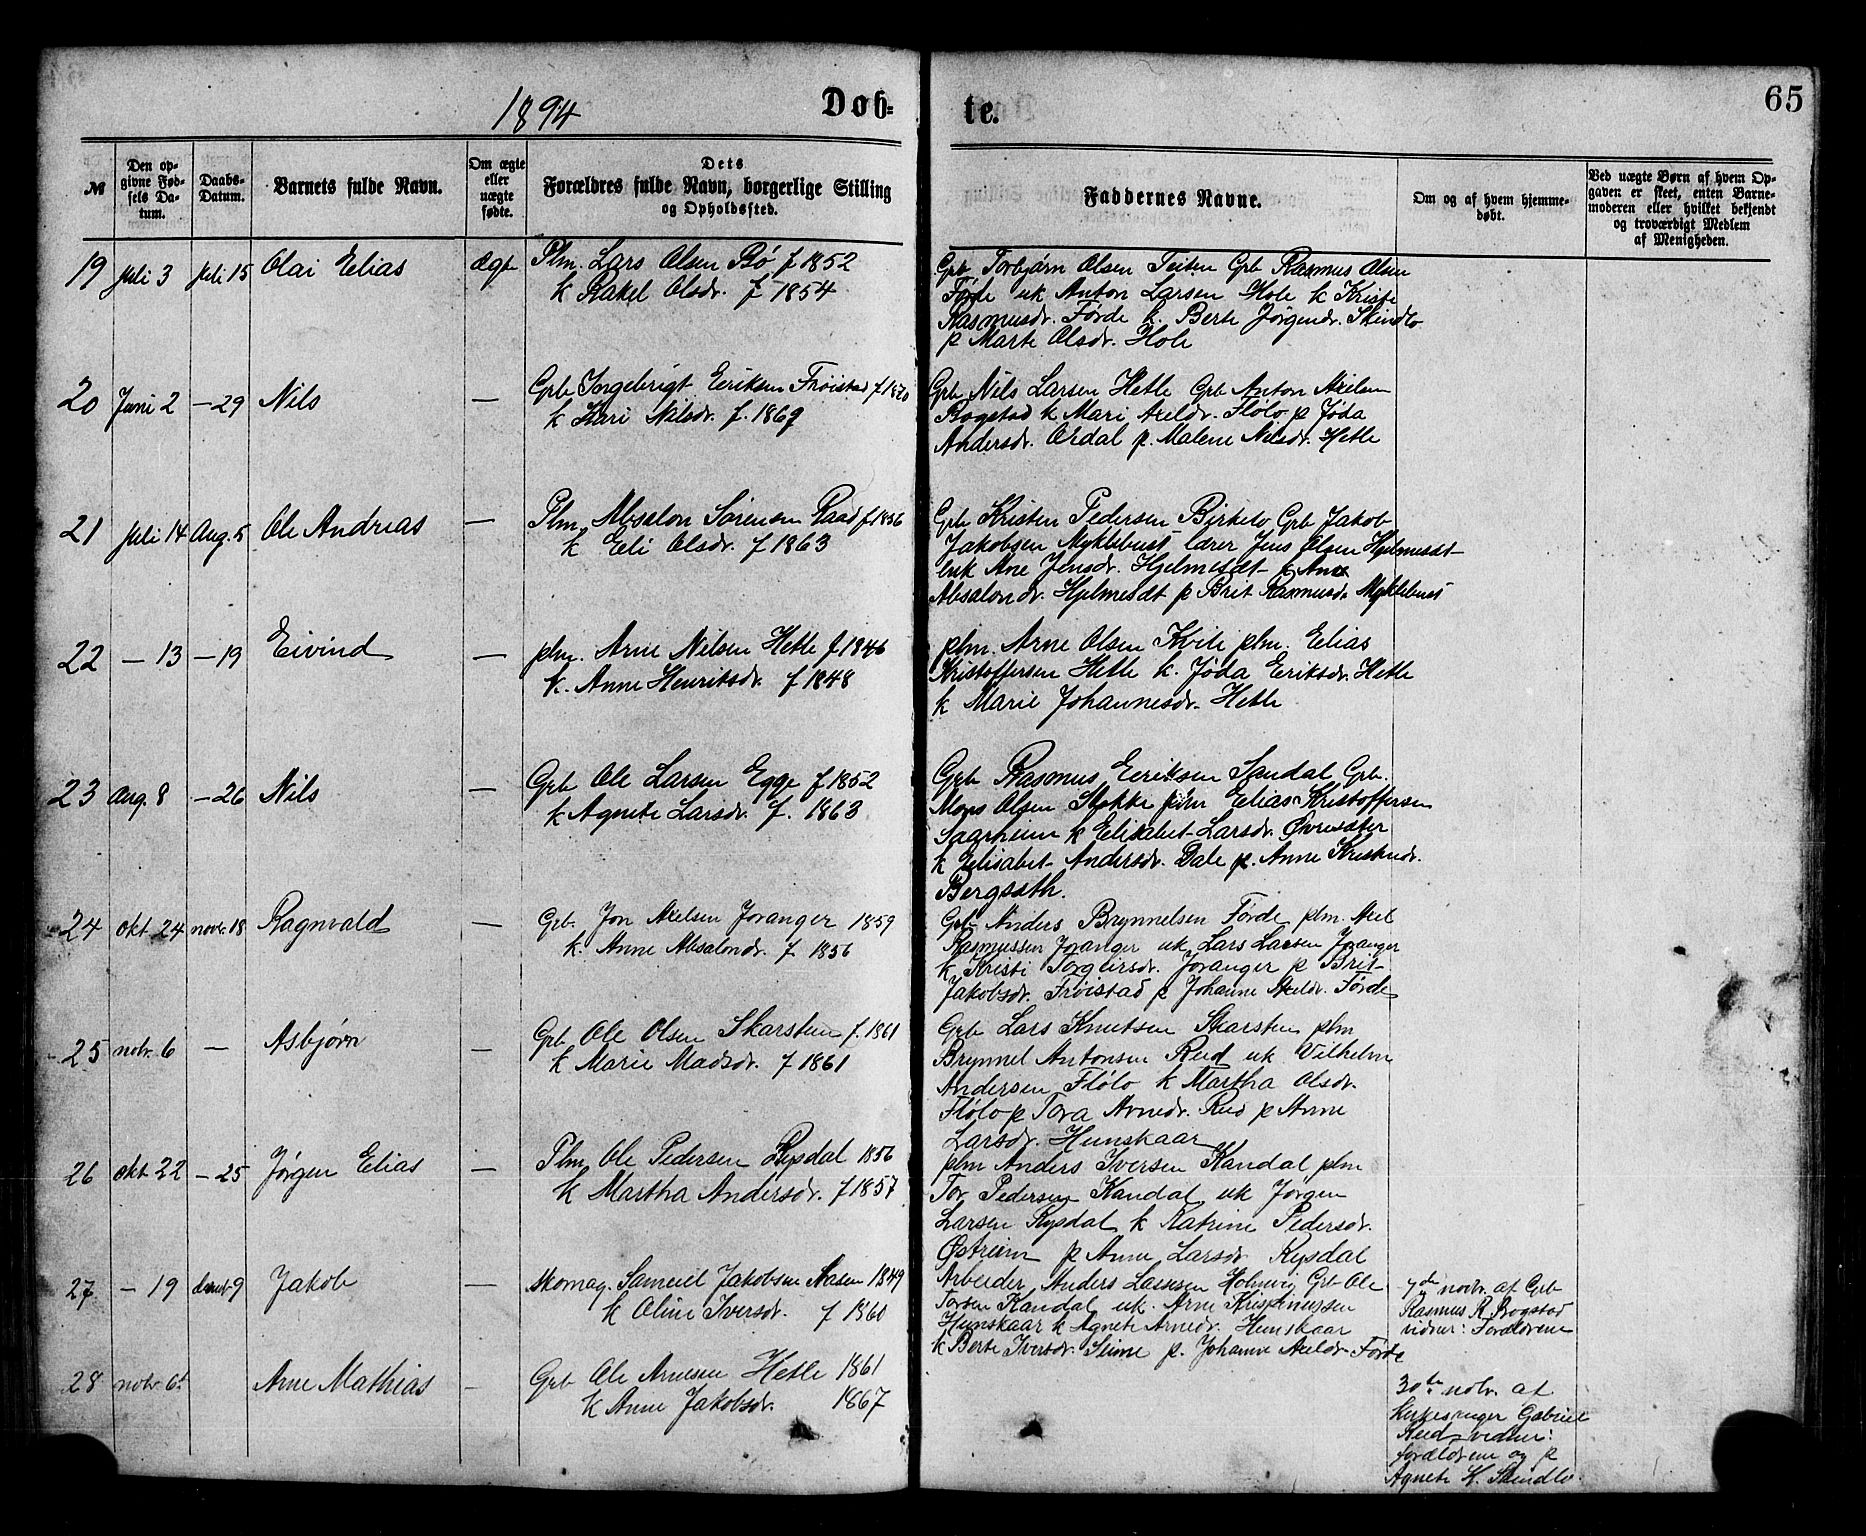 1894
Døb=
te.
65
№
Den op-
givne Fød-
sels Da-
tum.
Daabs-
Datum.
Barnets fulde Navn.
Om ægte
eller
uægte
fødte.
Dets
Forældres fulde Navn, borgerlige Stilling
og Opholdssted.
Faddernes Navne.
Om og af hvem hjemme-
døbt.
Ved uægte Børn af hvem Op-
gaven er skeet, enten Barne-
moderen eller hvilket bekjendt
og troværdigt Medlem
af Menigheden.
19 Juli 3 Juli 15 Olai Elias ægt Plm. Lars Olsen Bö f 1852
k Rakel Olsdr. f 1854
Grb Torbjørn Olsen Teiten Grb Rasmus Olsen
Førde uk Anton Larsen Hole k Kristi
Rasmusdr. Förde k. Berte Jørgendr. Skindlo
p Marte Olsdr. Hole
20 Juni 2 – 29 Nils — Grb Ingebrigt Eeriksen Fröistad f.
k Kari Nilsdr. f. 1869
Grb Nils Larsen Hetle Grb Anton Axelsen
Bogstad k Mari Axeldr. Flölo p Jöda
Andersdr. Ordal p. Malene Nilsdr. Hetle
21 Juli 14 Aug. 5 Ole Andreas — Plm Absalon Sørensen Raad f 1856
k Eeli Olsdr. f 1863
Grb Kristen Pedersen Birkelo Grb Jakob
Jakobsen Myklebust lærer Jens Olsen Hjelmesæt
Ane Jensdr. Hjelmesæt k Ane
Absalondr. Hjelmesæt p Brit Rasmusdr Myklebust
22 – 13 – 19 Eivind — plm. Arne Nilsen Hetle f 1846
k. Anne Henriksdr. f 1848
plm. Arne Olsen Kvile plm. Eelias
Kristoffersen Hetle k. Jöda Eeriksdr. Hetle
k Marie Johannesdr. Hetle
23 Aug. 8 – 26 Nils — Grb Ole Larsen Egge f 1852
k Agnete Larsdr. f. 1863
Grb Rasmus Eeriksen Sandal Grb.
Mons Olsen Stokke plm Eelias Kristoffersen
Aarheim k Eelisabet Larsdr. Øvresæter
k Eelisabet Andersdr. Dale p. Anne Kristendr.
Bergsæth.
24 okt 24 novr. 18 Ragnvald — Grb. Jon Axelsen Joranger 1859
k. Anne Absalondr. f 1856
Grb Anders Brynnelsen Förde plm. Axel
Rasmussen Joranger uk Lars Larsen Joranger
k Kristi Torgeirsdr. Joranger p Brit
Jakobsdr. Fröistad p Johanne Axeldr. Förde
25 novr. 6 — Asbjörn — Grb Ole Olsen Skarsten f. 1861
k Marie Madsdr. f 1861
Grb Lars Knutsen Skarsten plm
Brynnel Antonsen Reed uk Vilhelm
Andersen Flölo k Martha Olsdr.
Flölo p Tora Arnedr. Reed p Anne
Larsdr. Hunskaar
26 okt 22 – 25 Jörgen Eelias — Plm Ole Pedersen Rysdal 1856
k Martha Andersdr. f 1857
plm Anders Iversen Kandal plm
Tor Pedersen Kandal uk Jörgen
Larsen Rysdal k Katrine Pedersdr.
Østreim p Anne Larsdr Rysdal
27 – 19 decbr 9 Jakob — Skomag. Samuel Jakobsen Aasen 1849
k Oline Iversdr. f 1860
Arbeider Anders Lassesen Holmvig Grb Ole
Torsen Kandal uk. Arne Rasmussen
Hunskaar k Agnete Arnedr. Hunskaar
k Berte Iversdr. Seime p. Johanne Axeldr. Förde
7de novbr. af Grb
Rasmus R Bogstad
vidner: Forældrene
28 novbr. 6 Arne Mathias — Grb Ole Arnesen Hetle 1861
k Anne Jakobsdr. 1867
30te novbr. af
Kirkesanger Gabriel
Reed vidner:
forældrene og p
Agnete K. Skindlo.